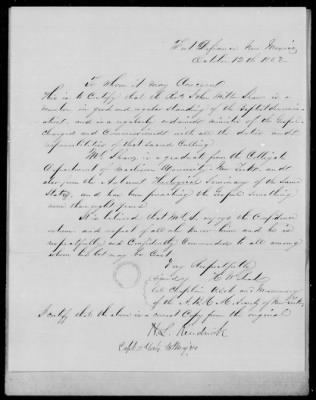 Fort Defiance New Mexico
October 12th 1852
To Whom it may Concern
This is to Certify that the Revd John M Shaw is a
member in good and regular standing of the Baptist
church, and is a regularly ordained minister of the Gospel
charged and Commissioned with all the duties and
responsibilities of that Sacred Calling.
Mr Shaw, is a graduate from the Collegiate
Department of Madison University New York, and
also from the Theological Seminary of the Same
State, and has been preaching the Gospel something
over years
It is believed that Mr S. enjoys the Confidence
esteem and respect of all who know him and he is
respectfully and Confidently Commended to all among
whom his lot may be Cast.
Very Respectfully
signed
Chaplain and Missionary
of the A. B. H. M. Society of New York
I certify that the above is a correct Copy from the original
H. L. Kendrick